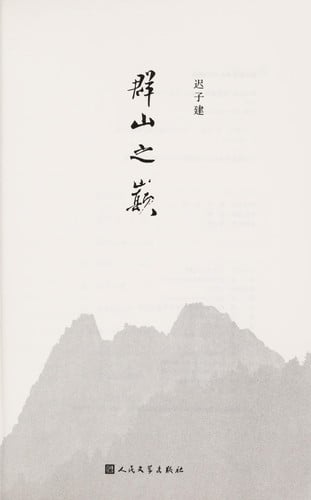 迟子建
群山之巅
人民文学出版社